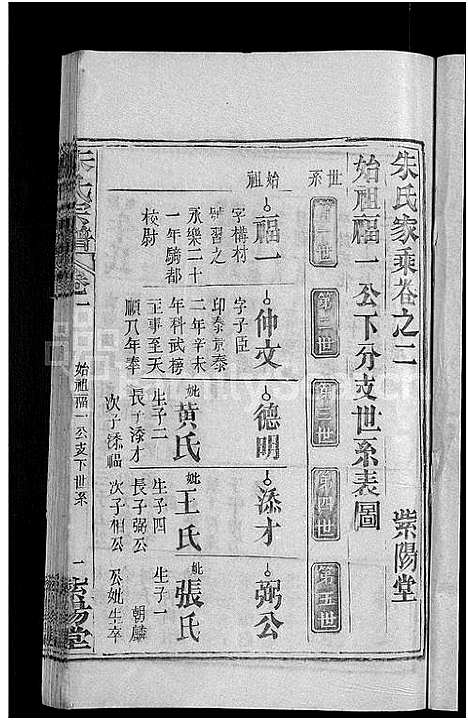 朱氏家乘卷之二
紫陽堂
始祖福一公下分支世系表圖
世系
第一世
第二世
第三世
第四世
第五世
始祖
福一
字構村
習之
永樂二十
一年騎都
校尉
仲文
字子臣
印泰景泰
二年辛未
年科武榜
正事至天
順八年奉
德明
妣黃氏
生子二
長子添才
次子添福
添才
妣王氏
生子四
長子弼公
次子相公
弼公
妣張氏
生子一
朝麟
公妣生卒
朱氏宗譜
卷二
始祖福一公支下世系
一
紫陽堂